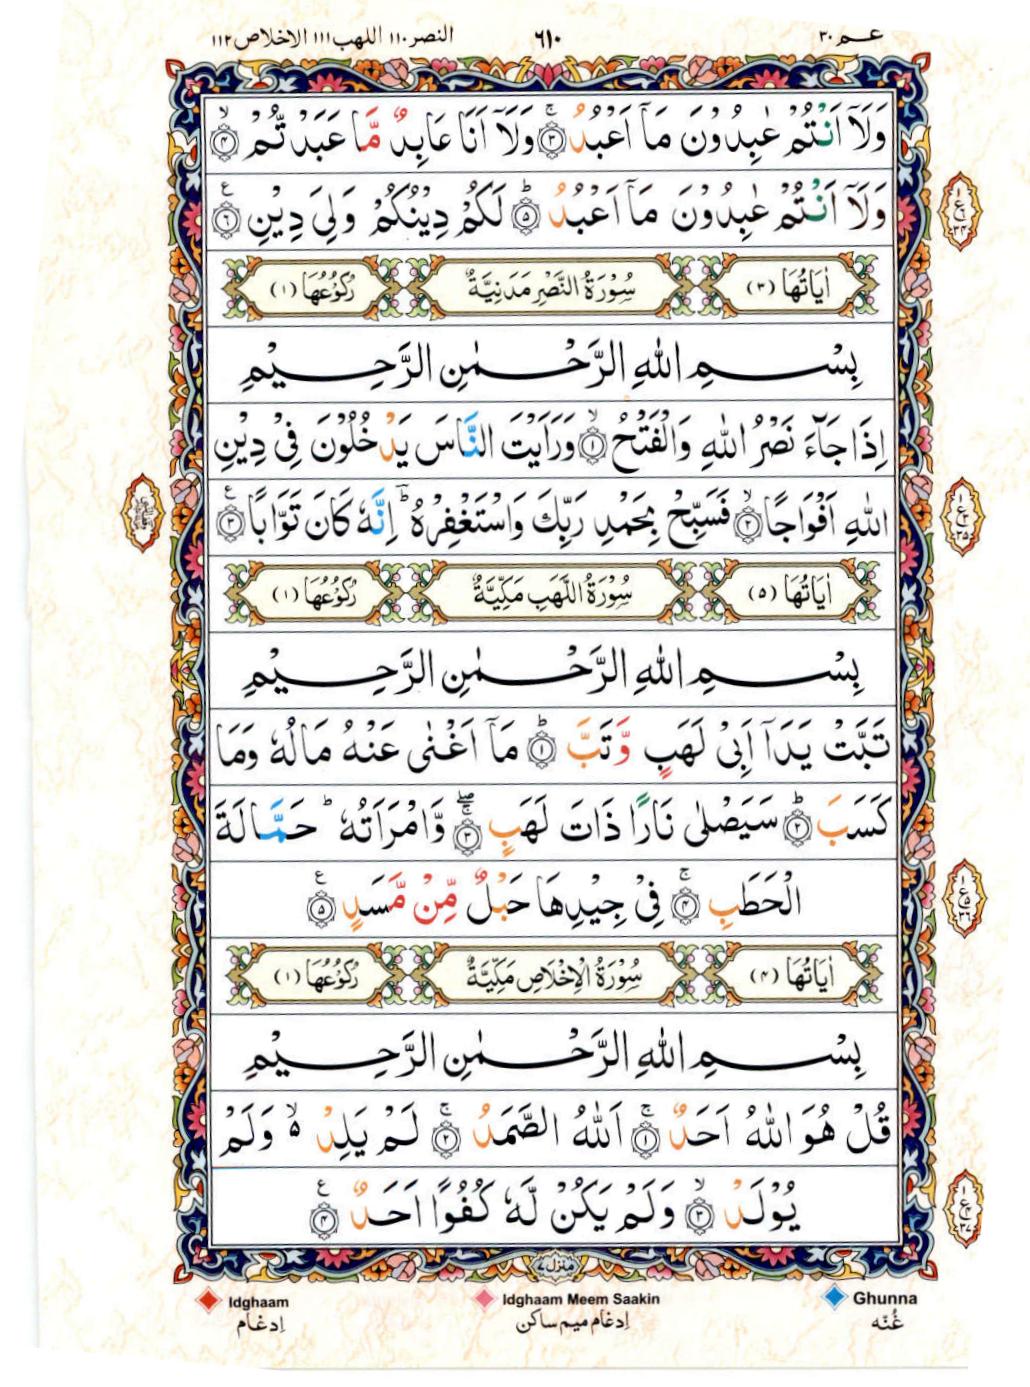 عـم ٣٠
٦١٠
النصر ١١٠ اللهب ١١١ الاخلاص ١١٢
وَلَاۤ اَنْتُمْ عٰبِدُوْنَ مَاۤ اَعْبُدُ ۚ﴿۳﴾ وَلَاۤ اَنَا عَابِدٌ مَّا عَبَدْتُّمْ ۙ﴿۴﴾
وَلَاۤ اَنْتُمْ عٰبِدُوْنَ مَاۤ اَعْبُدُ ؕ﴿۵﴾ لَكُمْ دِيْنُكُمْ وَلِيَ دِيْنِ ﴿۶﴾ ع
اٰيَاتُهَا (۳) سُوْرَةُ النَّصْرِ مَدَنِيَّةٌ رُكُوْعُهَا (۱)
بِسْمِ اللّٰهِ الرَّحْمٰنِ الرَّحِيْمِ
اِذَا جَآءَ نَصْرُ اللّٰهِ وَالْفَتْحُ ۙ﴿۱﴾ وَرَاَيْتَ النَّاسَ يَدْخُلُوْنَ فِيْ دِيْنِ
اللّٰهِ اَفْوَاجًا ۙ﴿۲﴾ فَسَبِّحْ بِحَمْدِ رَبِّكَ وَاسْتَغْفِرْهُ ؔؕ اِنَّهٗ كَانَ تَوَّابًا ﴿۳﴾ ع
اٰيَاتُهَا (۵) سُوْرَةُ اللَّهَبِ مَكِّيَّةٌ رُكُوْعُهَا (۱)
بِسْمِ اللّٰهِ الرَّحْمٰنِ الرَّحِيْمِ
تَبَّتْ يَدَاۤ اَبِيْ لَهَبٍ وَّتَبَّ ؕ﴿۱﴾ مَاۤ اَغْنٰى عَنْهُ مَالُهٗ وَمَا
كَسَبَ ؕ﴿۲﴾ سَيَصْلٰى نَارًا ذَاتَ لَهَبٍ ۚۖ﴿۳﴾ وَّامْرَاَتُهٗ ؕ حَمَّالَةَ
الْحَطَبِ ۚ﴿۴﴾ فِيْ جِيْدِهَا حَبْلٌ مِّنْ مَّسَدٍ ﴿۵﴾ ع
اٰيَاتُهَا (۴) سُوْرَةُ الْاِخْلَاصِ مَكِّيَّةٌ رُكُوْعُهَا (۱)
بِسْمِ اللّٰهِ الرَّحْمٰنِ الرَّحِيْمِ
قُلْ هُوَ اللّٰهُ اَحَدٌ ۚ﴿۱﴾ اَللّٰهُ الصَّمَدُ ۚ﴿۲﴾ لَمْ يَلِدْ ۙ۬ وَلَمْ
يُوْلَدْ ۙ﴿۳﴾ وَلَمْ يَكُنْ لَّهٗ كُفُوًا اَحَدٌ ﴿۴﴾ ع
منزل ۷
Ghunna
Idghaam Meem Saakin
Idghaam
غُنّه
اِدغام ميم ساكن
اِدغام